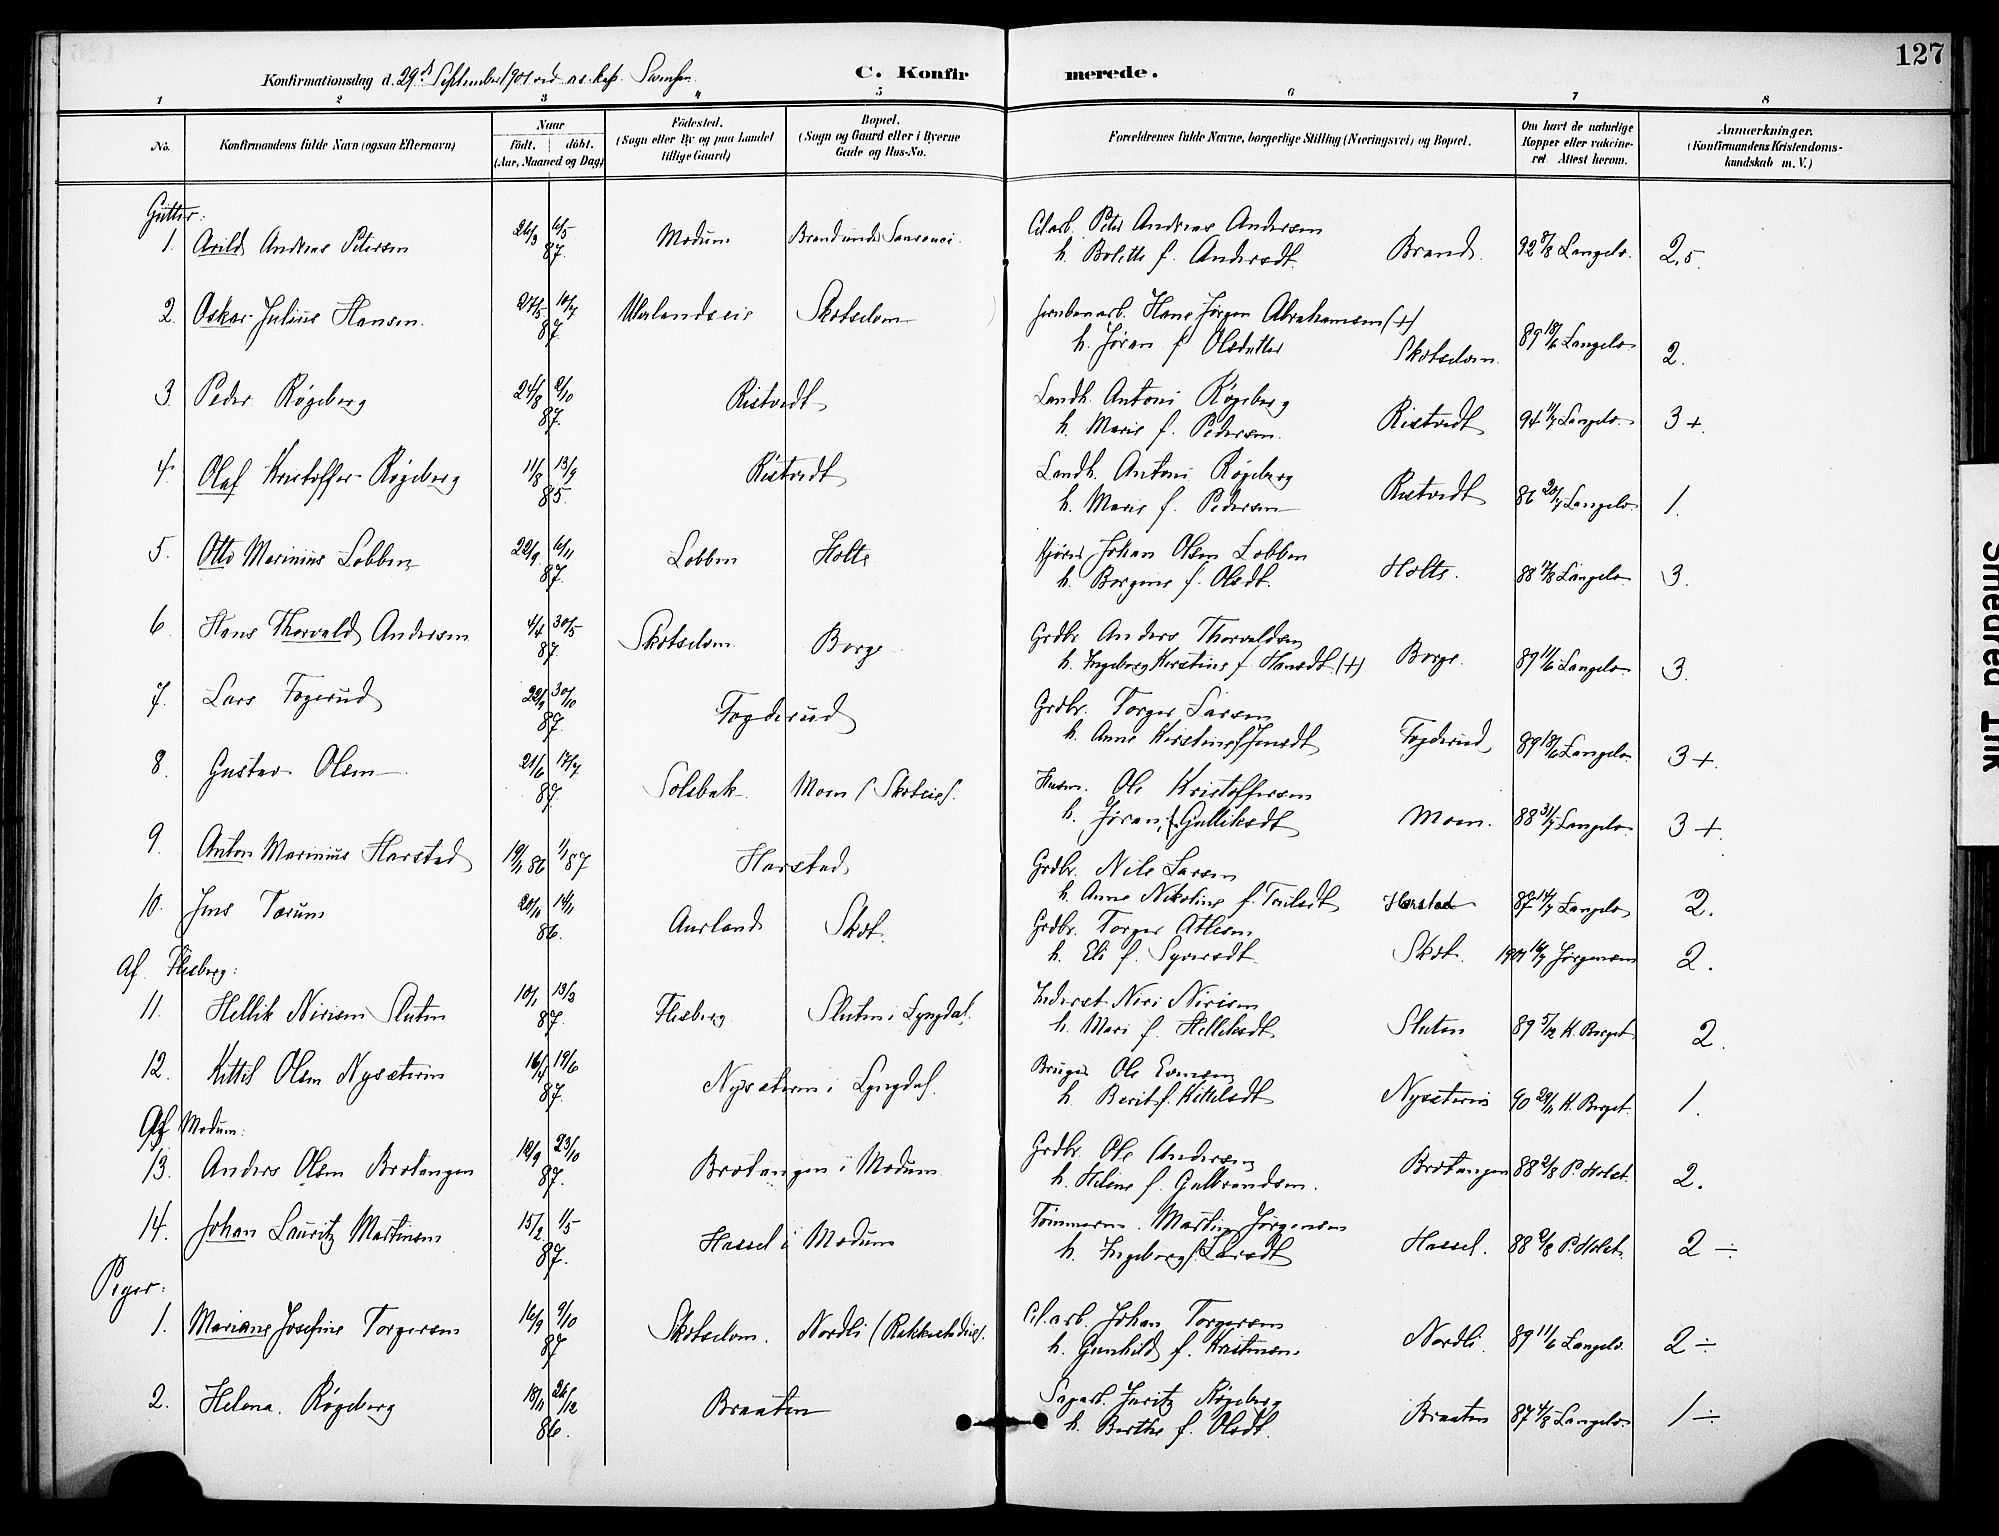 127
Konfirmationsdag d. 29de September 1901 ved
C. Konfirmerede.
1 2 3 4 5 6 7 8
No. Konfirmandens fulde Navn (ogsaa Efternavn) Naar födt. döbt. (Aar, Maaned og Dag) Födested. (Sogn eller By og paa Landet tillige Gaard) Bopæl. (Sogn og Gaard eller i Byerne Gade og Hus-No. Forældrenes fulde Navne, borgerlige Stilling (Næringsvei) og Bopæl. Om havt de naturlige Kopper eller vakcineret Attest herom. Anmærkninger. (Konfirmandens Kristendomskundskab m. V.)
Gutter:
1. Arild Andreas Petersen 26/3 6/5 87. Modum Brand under Sansouci. Cel.arb. Peter Andreas Andersen
h. Bolette f. Andersdt. Brand. Langelo. 2,5.
2. Oskar Julius Hansen. 27/5 10/7 87. Skotselven Hans Jørgen Abrahamsen (+)
h. Jøran f. Olsdatter Skotselven. 89 18/6 Langelo 2.
3. Peder Røgeberg 24/8 2/10 87. Ristvedt Landh. Antoni Røgeberg
h. Marie f. Pedersen. Ristvedt 94 11/7 Langelo. 3+.
4. Olaf Kristoffer Røgeberg 11/8 13/9 85. Ristvedt Landh. Antoni Røgeberg
h. Marie f. Pedersen Ristvedt 86 20/7 Langelo. 1.
5. Otto Marinius Lobben 22/9 6/11 87. Lobben Holte Kjører Johan Olsen Lobben
h. Borgine f. Olsdt. Holte. 88 Langelo 3.
6. Hans Thorvald Andersen 4/4 30/5 87. Skotselven Borge Grdbr. Anders Thorvaldsen
h. Ingeborg Kirstine f. Hansdt. (+) Borge. 89 11/6 Langelo 3.
7. Lars Fogerud 22/9 30/10 87. Fogderud Grdbr. Torger Larsen
h. Anne Kirstine f. Jensdt Fogderud 89 18/6 Langelo 3+.
8. Gustav Olsen 21/6 17/7 87. Solebak Moen (Skoteie). Husm. Ole Kristoffersen
h. Jøran f. Gulliksdt Moen. 88 31/7 Langelo. 3+.
9. Anton Marinius Harstad 19/11 86 1/1 87 Harstad Grdbr. Nils Larsen
h. Anne Nikoline f. Trulsdt Harstad 87 14/7 Langelo 2.
10. Jens Tærum 20/11 86. Aurland Skot. Grdbr. Torger Atlesen
h. Eli f. Syversdt. Skot. 1901 Jørgensen 2.
Af Flesberg:
11. Hellik Nirisen Sluten 10/1 13/3 87. Flesberg Sluten i Lyngdal. Inderst Niri Nirisen
h. Mari f. Helliksdt Sluten 89 5/12 K. Berget 2.
12. Kittil Olsen Nysæterin 16/4 19/6 87. Nysæterin i Lyngdal. Bruger Ole Evensen
h. Berit f. Kittelsdt Nysæterin 90 K. Berget 1.
Af Modum:
13. Anders Olsen Brotangen 12/9 23/10 87. Brotangen i Modum Grdbr. Ole Andersen
h. Helene f. Gulbrandsen. Brotangen 88 2/8 P. Holst. 2.
14. Johan Lauritz Martinsen 15/2 1/5 87. Hassel i Modum Tømmerm. Martin Jørgensen
h. Ingeborg f. Larsdt Hassel. 88 2/8 P. Holst. 2 ÷
Piger:
1. Mariane Josefine Torgersen 16/9 9/10 87 Skotselven. Nordli Cel.arb. Johan Torgersen
h. Gunhild f. Kristensen. Nordli. 89 11/6 Langelo. 2 ÷
2. Helena Røgeberg 18/11 26/12 86. Braaten Sagarb. Juritz Røgeberg
h. Berthe f. Olsdt. Braaten 87 4/8 Langelo 1 ÷
Smedrud Ink